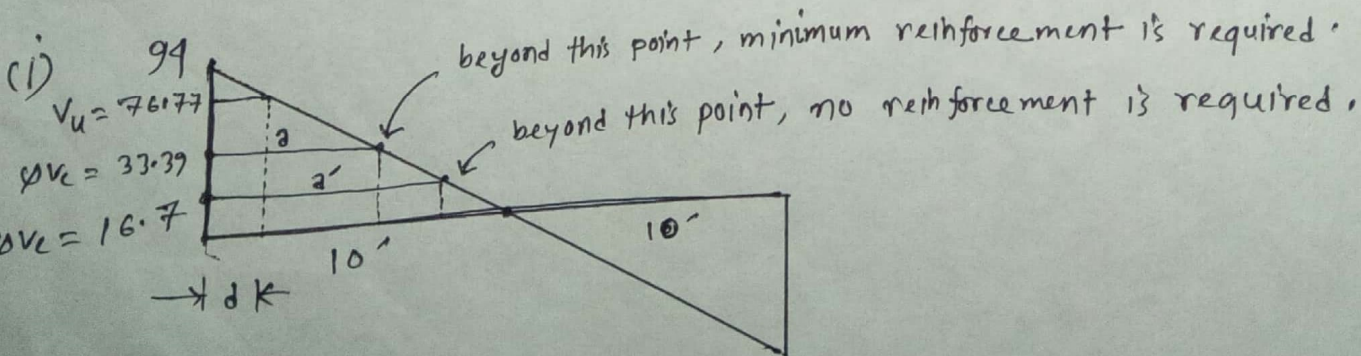 (i) 94
beyond this point, minimum reinforcement is required.
Vu = 76.77
beyond this point, no reinforcement is required.
a
φVc = 33.39
a'
φVc = 16.7
10'
10'
d